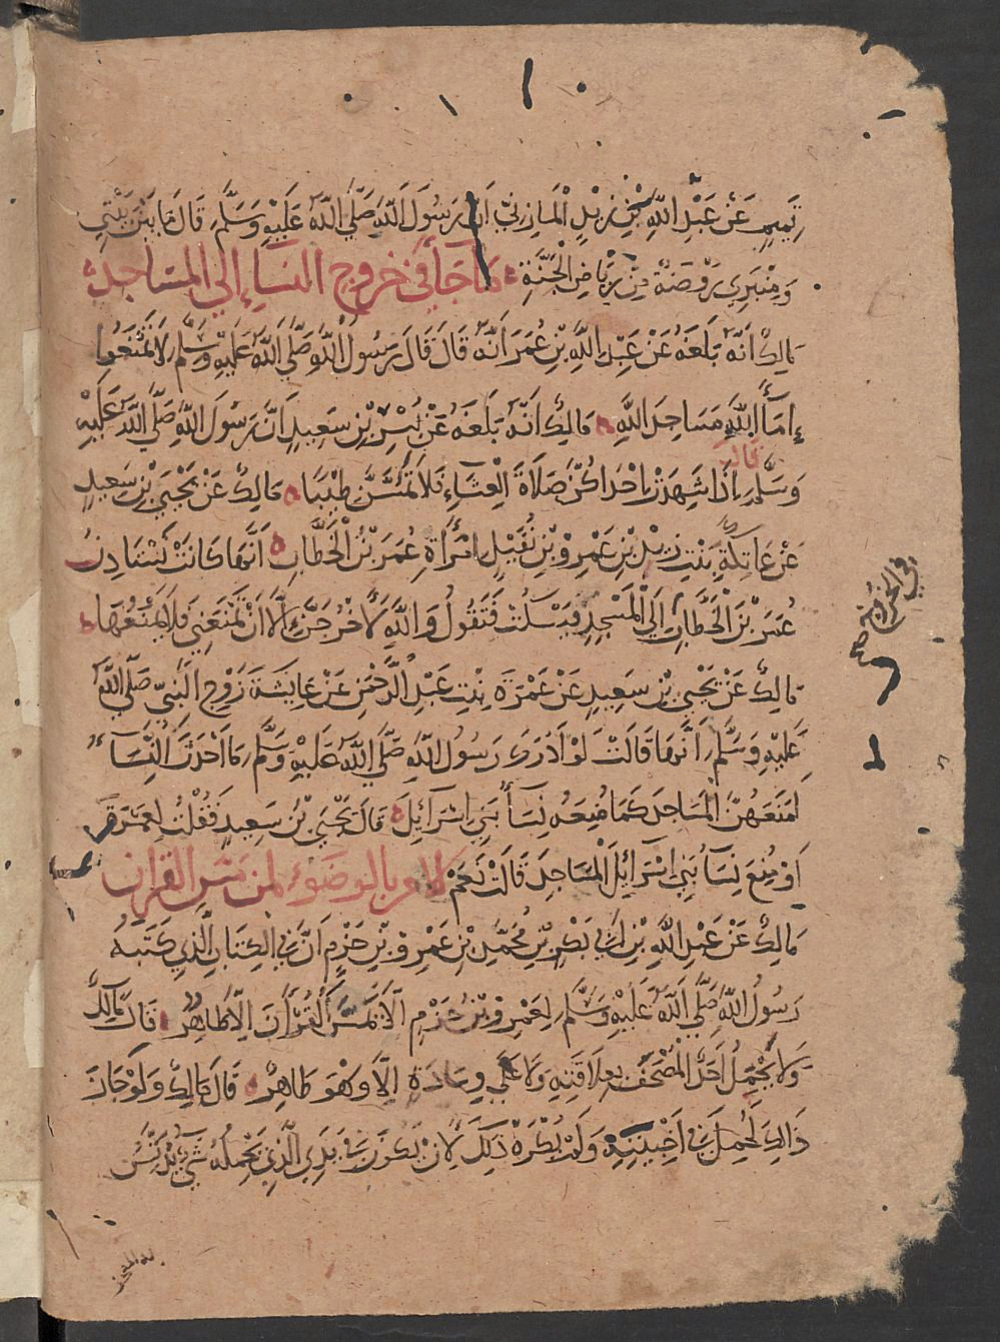 تَمِيمٍ عَنْ عَبْدِ اللَّهِ بْنِ زَيْدٍ الْمَازِنِيّ اَنَّ رَسُولَ اللَّهِ صَلَّي اللَّهُ عَلَيْهِ وَسَلَّمَ قَالَ مَا بَيْنَ بَيْتِي
وَمِنْبَرِي رَوْضَةٌ مِنْ رِيَاضِ الْجَنَّةِ مَا جَاَ فِي خُرُوجِ النسَاءِ إلَي الْمسَاجد
مَالِكٌ اَنَّهُ بَلَغَهُ عَنْ عَبْدِ اللَّهِ بْنِ عُمَرَ اَنَّهُ قَالَ قَالَ رَسُولُ اللَّهِ صَلَّي اللَّهُ عَلَيْهِ وَسَلَّمَ لَا تَمْنَعُوا
إِمَاَ اللَّهِ مَسَاجِدَ اللَّهِ مَالِكٌ اَنَّهُ بَلَغَهُ عَنْ بُسْرِ بْنِ سَعِيدٍ اَنَّ رَسُولَ اللَّهِ صَلَّي اللَّهُ عَلَيْهِ
وَسَلَّمَ قَالَ إِذَا شَهِدَتْ إِحْدَاكُنَّ صَلَاةَ الْعِشَاءِ فَلَا تَمَسَّنَّ طِيبًا مَالِكٌ عَنْ يَحْيَي بْنِ سَعِيدٍ
عَنْ عَاتِكَةَ بِنْتِ زَيْدِ بْنِ عَمْرِو بْنِ نُفَيْلٍ امْرَأَةِ عُمَرَ بْنِ الْخَطَّابِ اَنَّهَا كَانَتْ تَسْتَاذِنُ
عُمَرَ بْنَ الْخَطَّابِ اِلَي الْمَسْجِدِ فَيَسْكُتُ فَتَقُولُ وَاللَّهِ لَاَخْرُجَنَّ إِلَّا اَنْ تَمْنَعَنِي فَلَا يَمْنَعُهَا
مَالِكٌ عَنْ يَحْيَي بْنِ سَعِيدٍ عَنْ عَمْرَةَ بِنْتِ عَبْدِ الرَّحْمَنِ عَنْ عَايِشَةَ زَوْجِ النَّبِيّ صَلَّي اللَّهُ
عَلَيْهِ وَسَلَّمَ اَنَّهَا قَالَتْ لَوْ اَدْرَكَ رَسُولُ اللَّهِ صَلَّي اللَّهُ عَلَيْهِ وَسَلَّمَ مَا اَحْدَثَ النِّسَاُ
لَمَنَعَهُنَّ الْمَسَاجِدَ كَمَا مُنِعَهُ نِسَاُ بَنِي اسْرَائِلَ قَالَ يَحْيَي بْنُ سَعِيدٍ فَقُلْتُ لِعَمْرَةَ
اَوَ مُنِعَ نِسَاُ بَنِي اسْرَائِلَ الْمَسَاجِدَ قَالَتْ نَعَمْ الامر بالوضوءِ لمن مَسَّ القران
مَالِكٌ عَنْ عَبْدِ اللَّهِ بْنِ اَبِي بَكْرِ بْنِ مُحَمَّدِ بْنِ عَمْرِو بْنِ حَزْمٍ اَنَّ فِي الْكِتَابِ الَّذِي كَتَبَهُ
رَسُولُ اللَّهِ صَلَّي اللَّهُ عَلَيْهِ وَسَلَّمَ لِعَمْرِو بْنِ حَزْمٍ اَلَّا يَمَسَّ الْقُرْآنَ اِلَّا طَاهِرٌ قَالَ مَالِكٌ
وَلَا يَحْمِلُ اَحَدٌ الْمُصْحَفَ بِعِلَاقَتِهِ وَلَا عَلَي وِسَادَةٍ اِلَّا وَهْوَ طَاهِرٌ قَالَ مَالِكٌ وَلَوْ جَازَ
ذَالِكَ لَحُمِلَ فِي اَخْبِيَتِهِ وَلَمْ يُكْرَهْ ذَلِكَ لِاَنْ يَكُونَ فِي يَدَيِ الَّذِي يَحْمِلُهُ شَيْءٌ يُدَنِّسُ
في الخروج
به المصحف